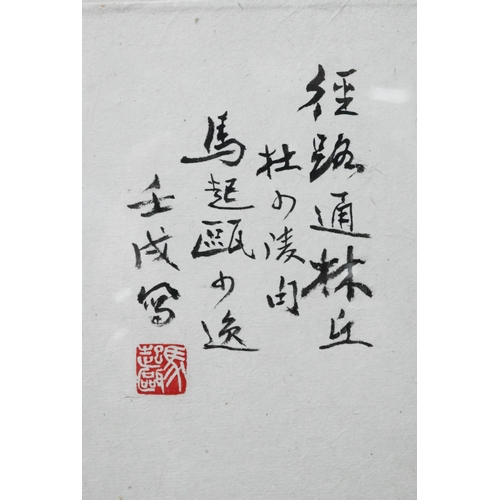 徑路通林丘
杜少陵句
馬起甌少逸
壬戌寫
馬起甌